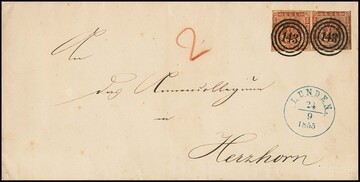 2
143 143
An
das Armencollegium
in
Herzhorn.
LUNDEN.
24
9
1855